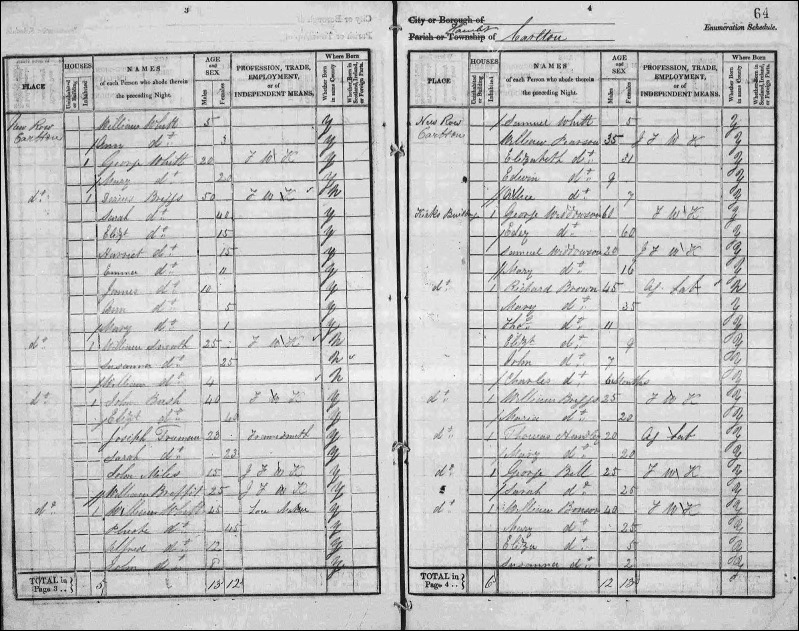 3
PLACE HOUSES Uninhabited or Building Inhabited NAMES of each Person who abode therein the preceding Night. AGE and SEX Males Females PROFESSION, TRADE, EMPLOYMENT, or of INDEPENDENT MEANS. Where Born Whether Born in same County Whether Born in Scotland, Ireland, or Foreign Parts.
New Row William Whitt 5 Y
Carlton Ann do 3 Y
1 George Whitt 20 F W K Y
Mary do 20 Y
do 1 50 F W K N
Sarah do 40 Y
Elizt do 15 Y
Harriet do 15 Y
Emma do 11 Y
James do 10 Y
Ann do 5 Y
Mary do 1 Y
do 1 William 25 F W K N
Susanna do 25 N
William do 4 N
do 1 John Bush 40 F W K Y
Elizt do 40 Y
Joseph 20 Framesmith Y
Sarah do 23 Y
John Miles 15 J F W K Y
William 25 J F W K Y
do 1 William Whitt 45 Y
do 45 Y
Alfred do 12 Y
John do 8 Y
TOTAL in Page 3 .. 5 13 12
4
64
City or Borough of
Parish or Township of Carlton
Enumeration Schedule.
PLACE HOUSES Uninhabited or Building Inhabited NAMES of each Person who abode therein the preceding Night. AGE and SEX Males Females PROFESSION, TRADE, EMPLOYMENT, or of INDEPENDENT MEANS. Where Born Whether Born in same County Whether Born in Scotland, Ireland, or Foreign Parts.
New Row Samuel Whitt 5 Y
Carlton William Pearson 35 J F W K Y
Elizabeth do 31 Y
Edwin do 9 Y
Alice do 7 Y
Kirks Buildings 1 George Widdowson 60 F W K Y
do 60 Y
Samuel Widdowson 20 J F W K Y
Mary do 16 Y
do 1 Richard Brown 45 Ag Lab N
Mary do 35 Y
Thos do 11 Y
Elizt do 9 Y
John do 7 Y
Charles do 6 Months Y
do 1 William 25 F W K Y
Maria do 20 Y
do 1 Thomas 20 Ag Lab Y
Mary do 20 Y
do 1 George Bell 25 F W K Y
Sarah do 25 Y
do 1 William 40 F W K Y
Mary do 25 Y
Eliza do 5 Y
Susanna do 2 Y
TOTAL in Page 4 .. 6 12 13